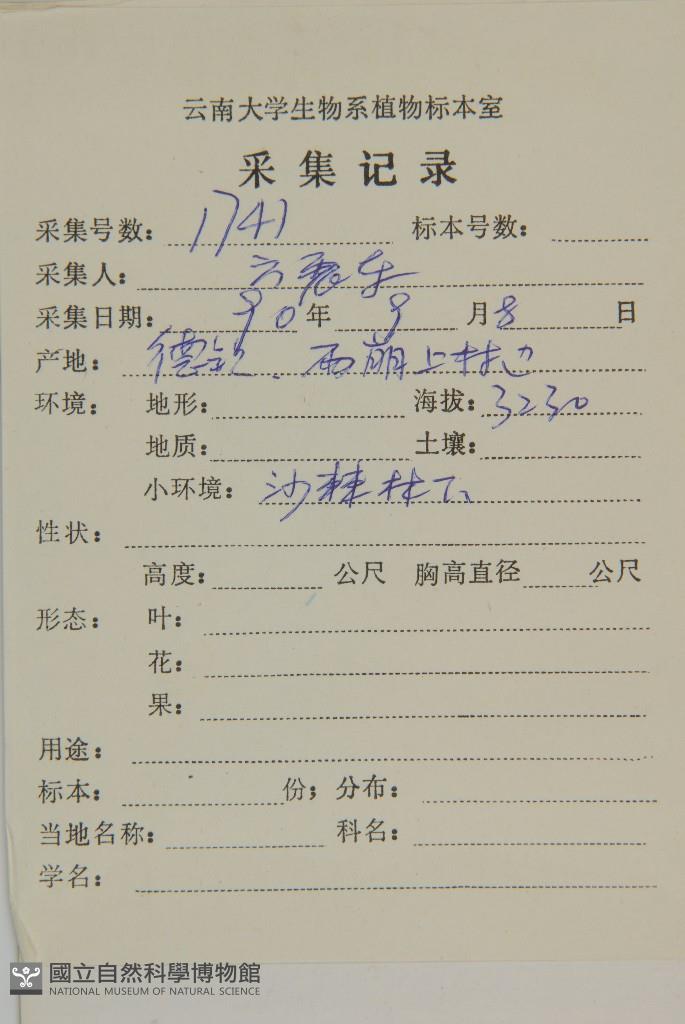 云南大学生物系植物标本室
采集记录
采集号数: 1741 标本号数:
采集人: 方震东
采集日期: 90年 9月8日
产地: 德钦、西崩上林边
环境: 地形: 海拔: 3230
地质: 土壤:
小环境: 沙棘林下
性状:
高度: 公尺 胸高直径 公尺
形态: 叶:
花:
果:
用途:
标本: 份; 分布:
当地名称: 科名:
学名:
國立自然科學博物館
NATIONAL MUSEUM OF NATURAL SCIENCE